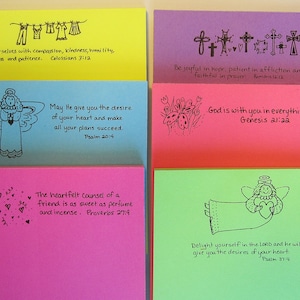 selves with compassion, kindness, humility,
and patience. Colossians 3:12
Be joyful in hope, patient in affliction
faithful in prayer.
May He give you the desire
of your heart and make
all your plans succeed.
Psalm 20:4
God is with you in everything
Genesis 21:22
The heartfelt counsel of a
friend is as sweet as perfume
and incense. Proverbs 27:9
Delight yourself in the Lord and he will
give you the desires of your heart.
Psalm 37:4